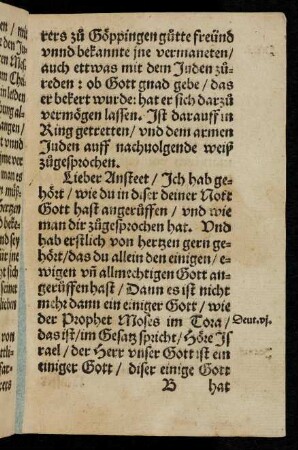 rers zů Göppingen gůtte freünd
vnnd bekannte jne vermaneten/
auch ettwas mit dem Juden zů-
reden : ob Gott gnad gebe / das
er bekert wurde: hat er sich darzů
vermögen lassen. Ist darauff in
Ring getretten / vnd dem armen
Juden auff nachuolgende weiß
zůgesprochen.
Lieber Ansteet / Ich hab ge-
hört / wie du in diser deiner Nott
Gott hast angerůffen / vnd wie
man dir zůgesprochen hat. Vnd
hab erstlich von hertzen gern ge-
hört/das du allein den einigen/ e-
wigen vñ allmechtigen Gott an-
gerůffen hast / Dann es ist nicht
meht dann ein einiger Gott / wie
der Prophet Moses im Tora/ Deut.vj.
das ist/im Gesatz spricht/ Höre Is
rael / der Herr vnser Gott ist ein
einiger Gott / diser einige Gott
B hat